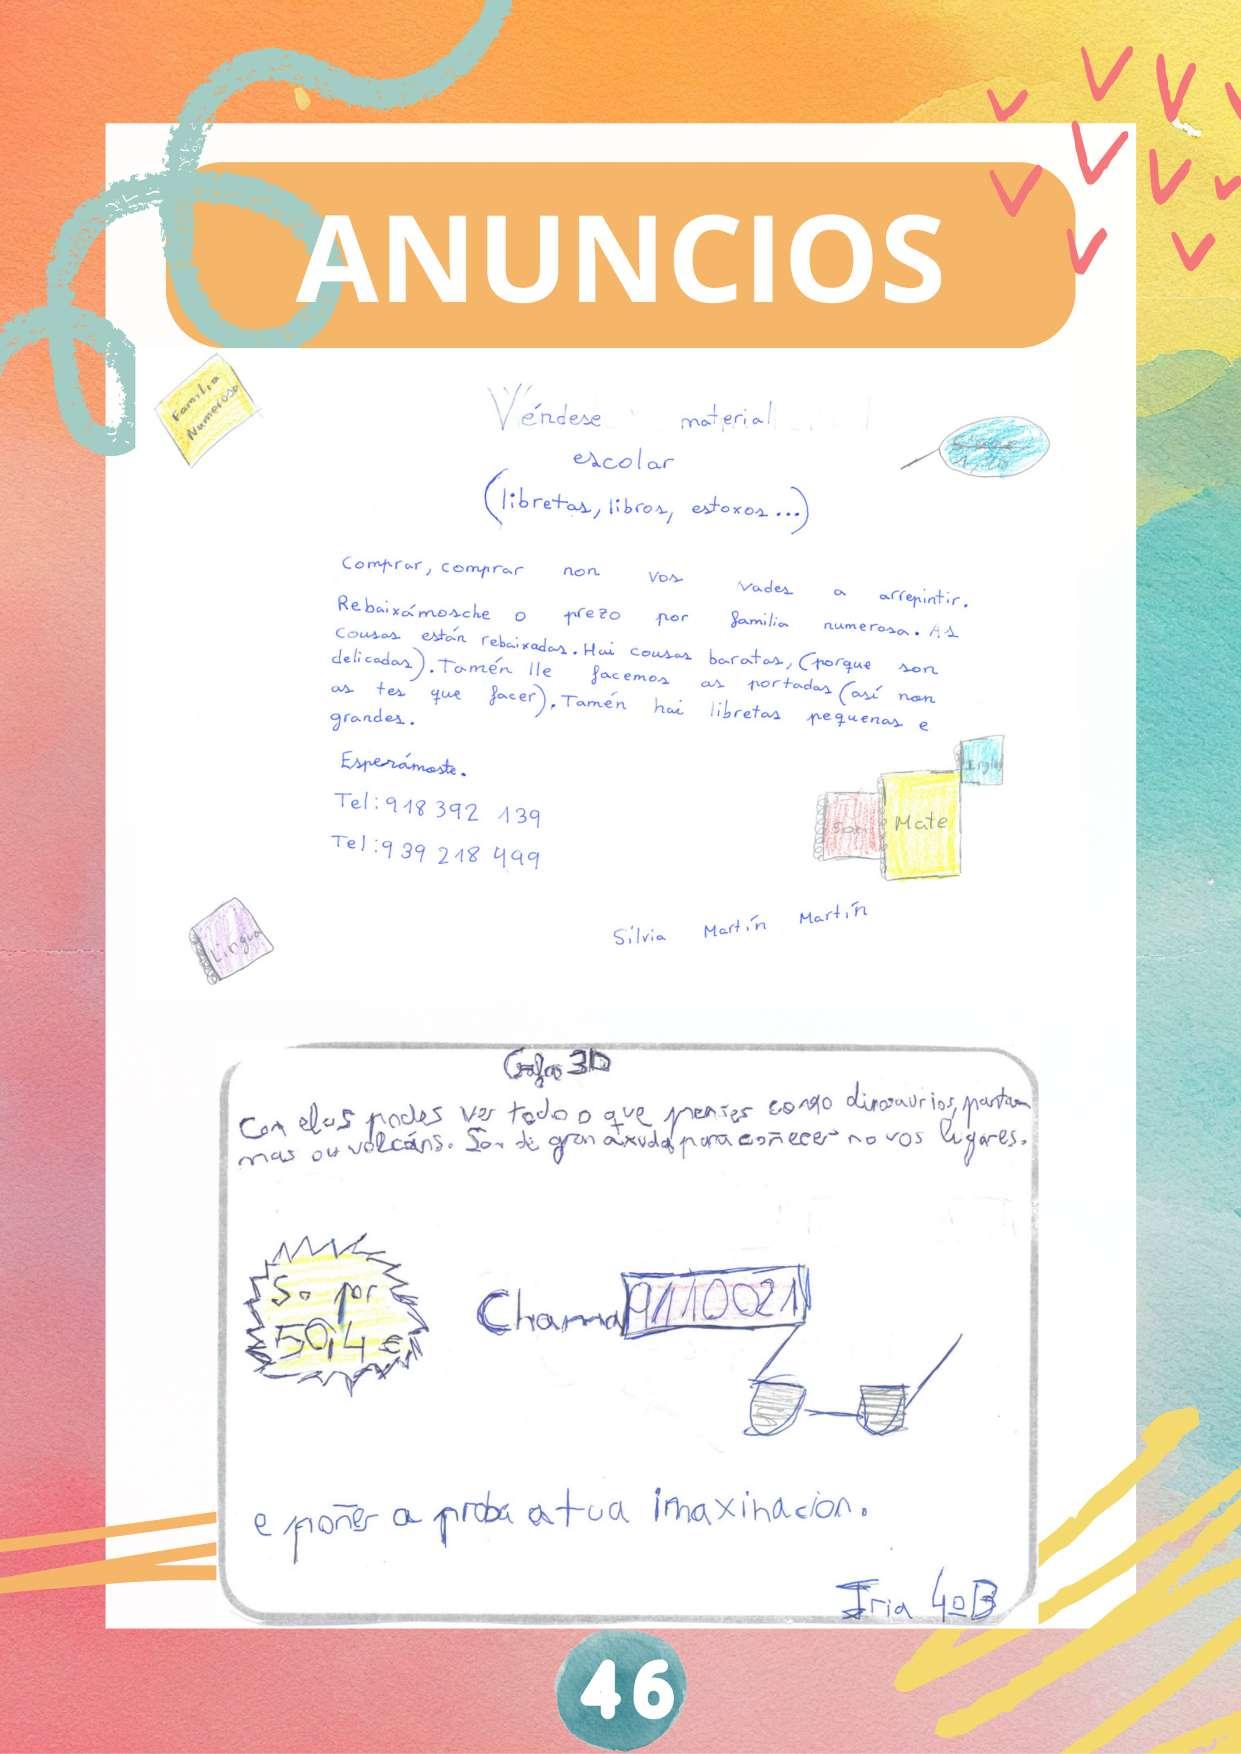 ANUNCIOS
Familia
Numerosa
Véndese material
escolar
(libretas, libros, estoxos...)
Comprar, comprar non vos vades a arrepintir.
Rebaixámosche o prezo por familia numerosa. As
cousas están rebaixadas. Hai cousas baratas, (porque son
delicadas). Tamén lle facemos as portadas (así non
as tes que facer). Tamén hai libretas pequenas e
grandes.
Esperámoste.
Tel: 918 392 139
Tel: 939 218 499
Mate
Lingua
Silvia Martín Martín
Gafas 3D
Con elas podes ver todo o que penses como dinosaurios, pantas
mas ou volcáns. Son de gran axuda para coñecer novos lugares.
So por
50,4 €
Chama 9110021
e poñer a proba a tua imaxinacion.
Iria 4ºB
46